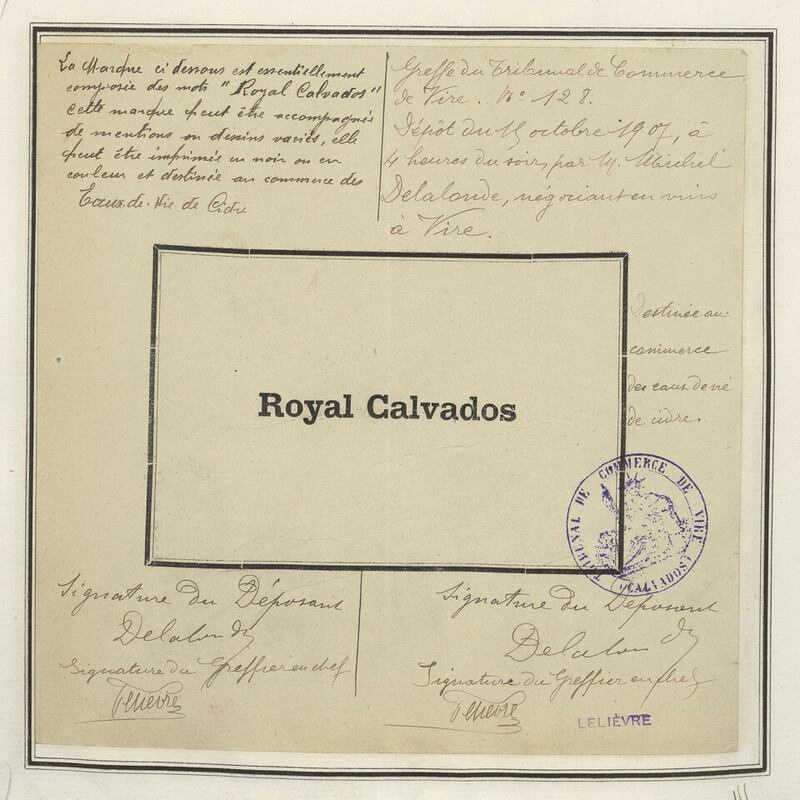 La Marque ci dessous est essentiellement
composée des mots "Royal Calvados"
cette marque peut être accompagnée
de mentions ou dessins variés, elle
peut être imprimée en noir ou en
couleur et destinée au commerce des
Eaux-de-Vie de Cidre
Greffe du Tribunal de Commerce
de Vire. No 128.
Dépôt du 15 octobre 1907, à
4 heures du soir, par M. Michel
Delalonde, négociant en vins
à Vire.
Royal Calvados
Destinée au
commerce
des eaux de vie
de cidre.
TRIBUNAL DE COMMERCE DE VIRE
(CALVADOS)
Signature du Déposant
Delalonde
Signature du Greffier en chef
Lelièvre
Signature du Déposant
Delalonde
Signature du Greffier en chef
Lelièvre
LELIÈVRE